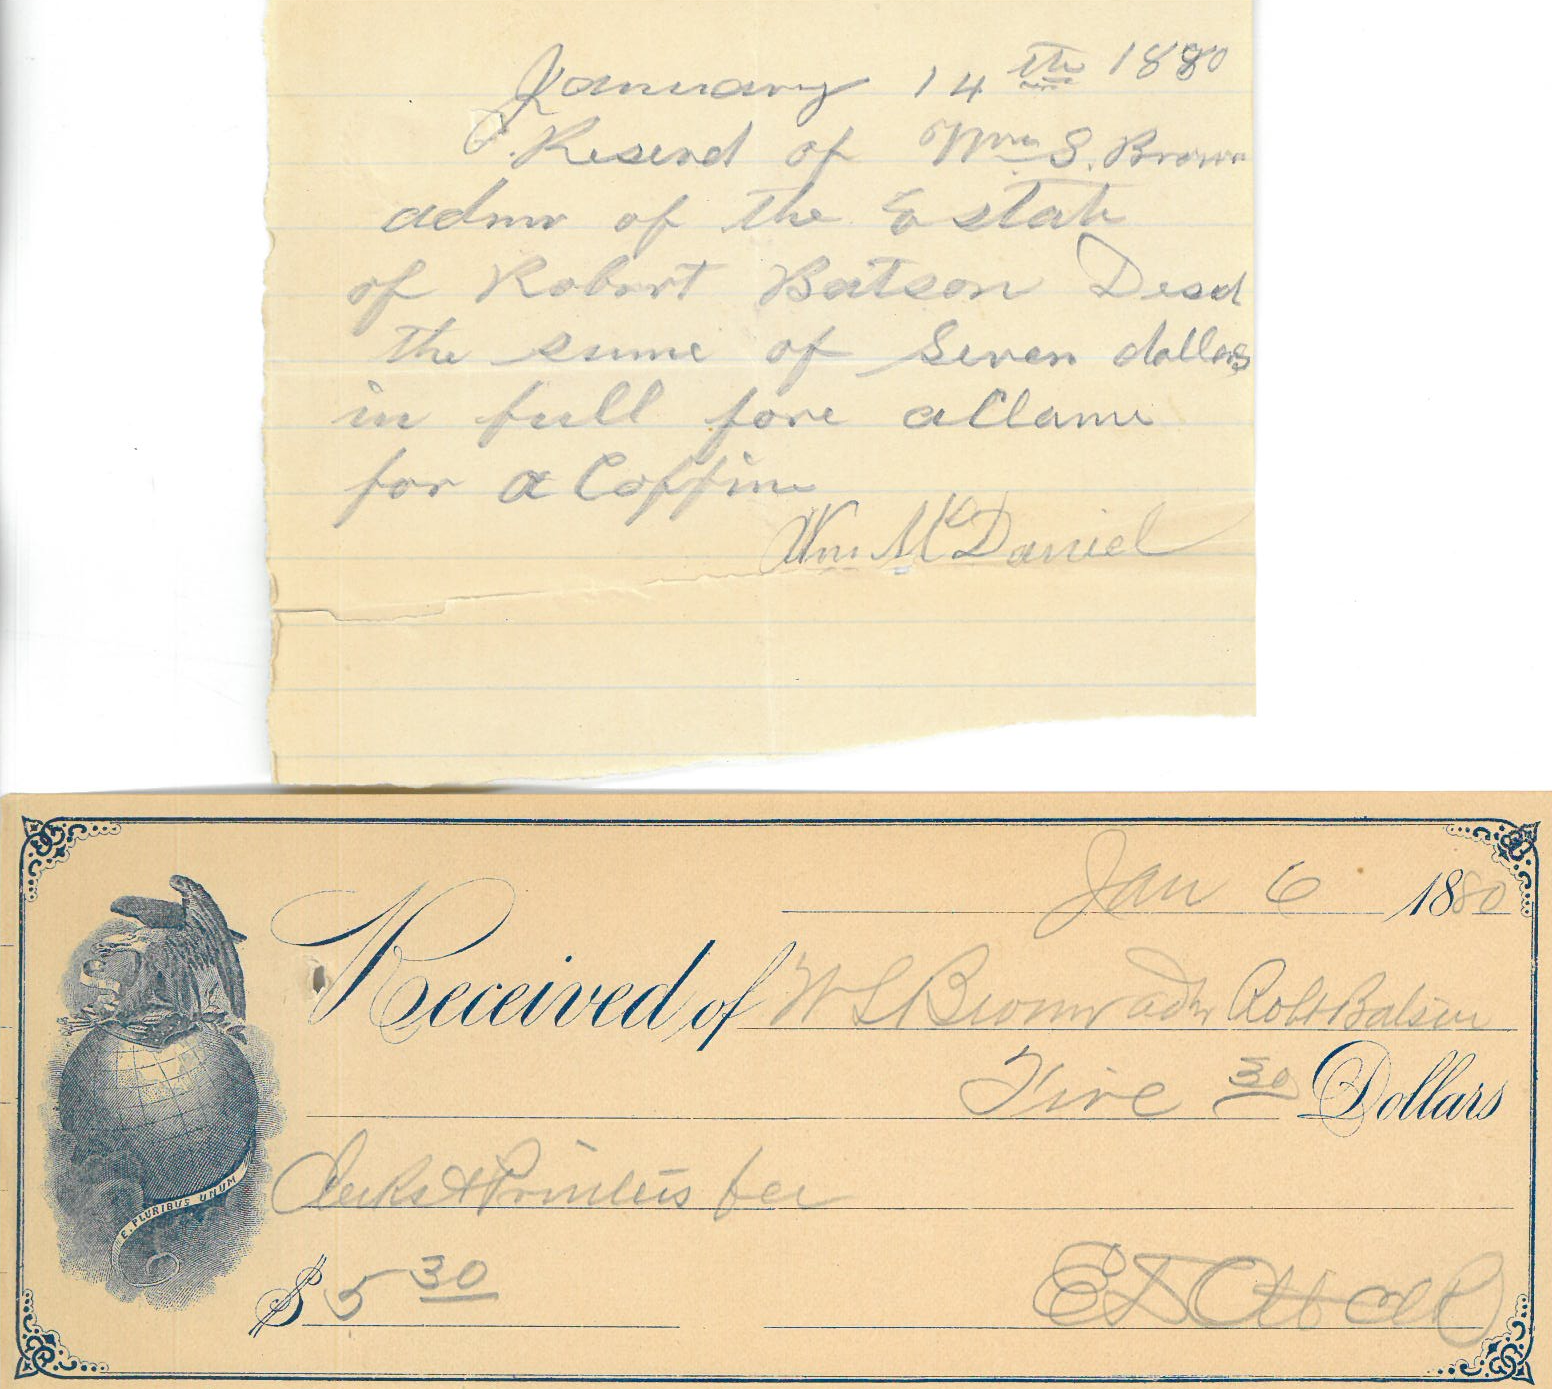 January 14th 1880
Reserd of Wm S. Brown
admr of the Estate
of Robert Batson Desd
the sume of Seven dollars
in full fore a Clame
for a Coffin
Wm McDaniel
Jan 6 1880
Received of W S Brown adm Robt Batson
Five 30 Dollars
Clerks & Printers fee
E. PLURIBUS UNUM
$ 5 30